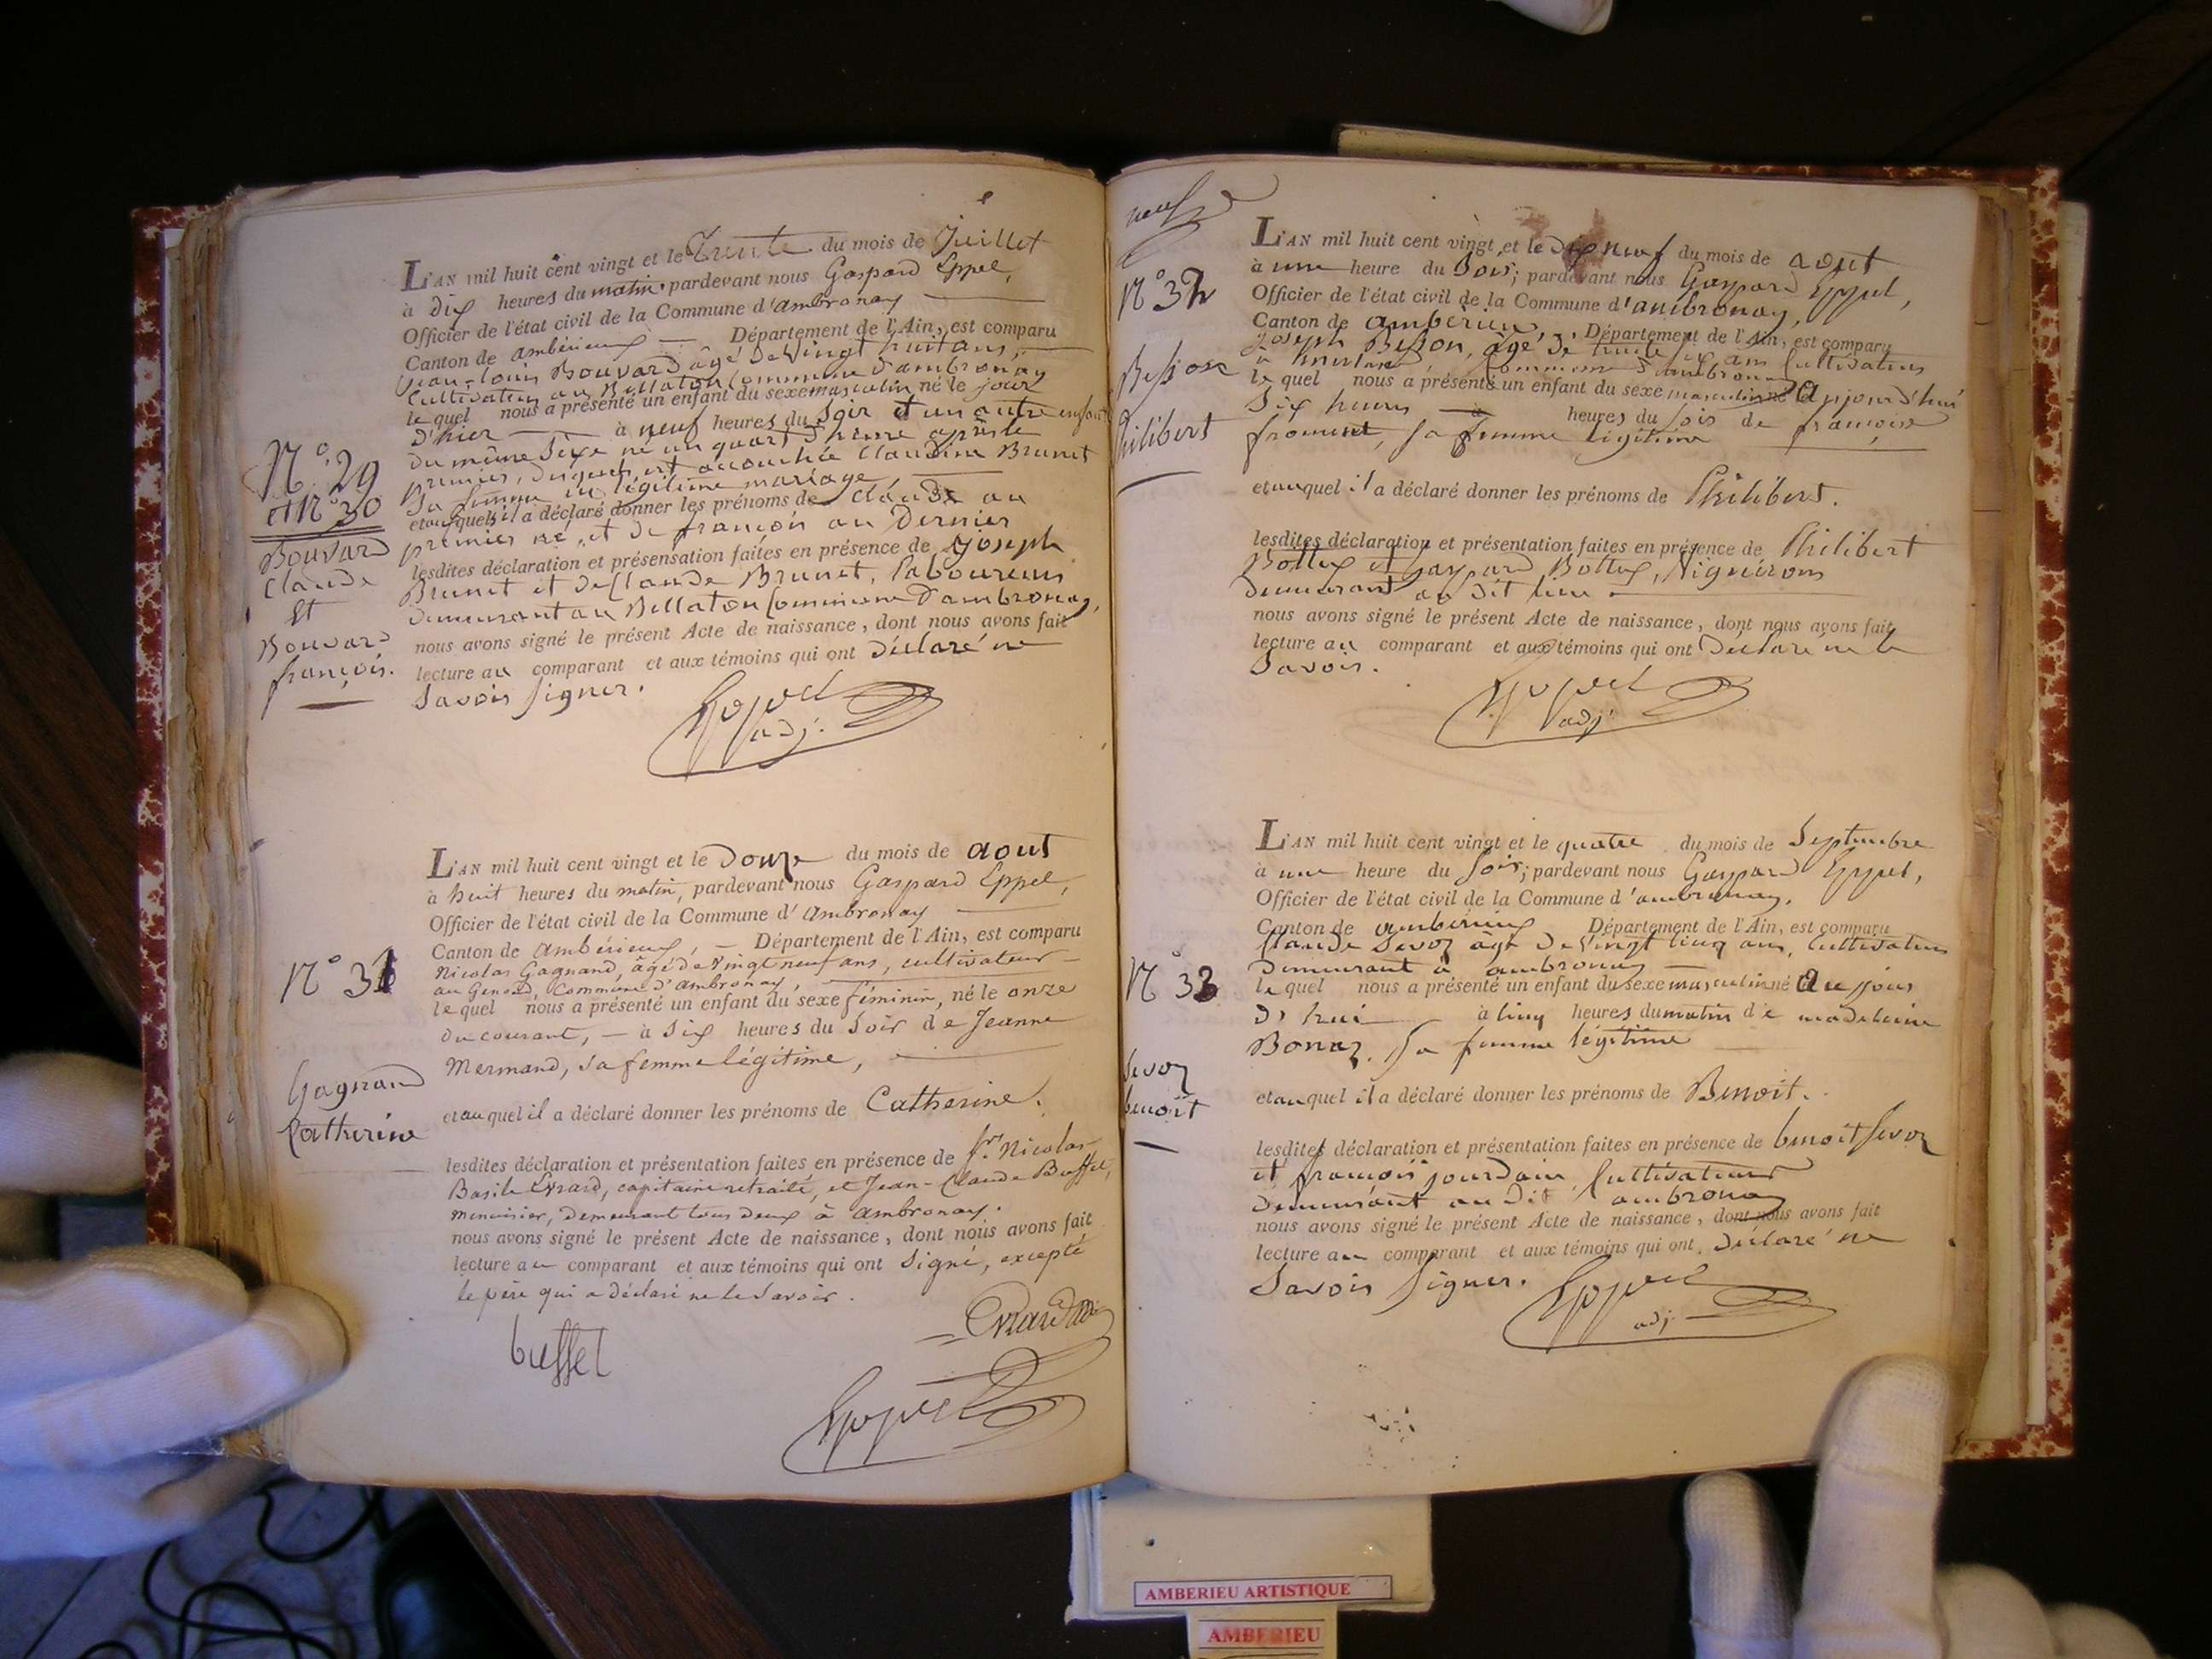 L'AN mil huit cent vingt et le Trente du mois de Juillet
à dix heures du matin, pardevant nous Gaspard Eppel,
Officier de l'état civil de la Commune d'ambronay
Canton de ambérieux — Département de l'Ain, est comparu
Jean-louis Bouvard âgé de Vingt huit ans,
Cultivateur au Bellaton Commune d'ambronay
lequel nous a présenté un enfant du sexe masculin né le jour
d'hier — à neuf heures du Soir et un autre enfant
du même Sexe né un quart d'heure après le
premier, desquels est accouchée Claudine Brunet
Sa femme en légitime mariage
et auquels il a déclaré donner les prénoms de Claude au
premier né, et de françois au Dernier
lesdites déclaration et présensation faites en présence de Joseph
Brunet et de Claude Brunet, laboureurs
demeurant au Bellaton Commune d'ambronay,
nous avons signé le présent Acte de naissance, dont nous avons fait
lecture au comparant et aux témoins qui ont déclaré ne
Savoir Signer.
Eppel
adj.
N° 29
et N° 30
Bouvard
Claude
Et
Bouvard
françois.
L'AN mil huit cent vingt et le Douze du mois de aout
à huit heures du matin, pardevant nous Gaspard Eppel,
Officier de l'état civil de la Commune d'ambronay
Canton de ambérieux, — Département de l'Ain, est comparu
Nicolas Gagnand, âgé de Vingt neuf ans, cultivateur
au Genoud, Commune d'ambronay,
lequel nous a présenté un enfant du sexe féminin, né le onze
du courant, — à Six heures du Soir de Jeanne
Mermand, sa femme légitime,
et auquel il a déclaré donner les prénoms de Catherine.
lesdites déclaration et présentation faites en présence de Srs Nicolas
Basile Evrard, capitaine retraité, et Jean-Claude Buffet,
menuisier, demeurant tous deux à ambronay.
nous avons signé le présent Acte de naissance, dont nous avons fait
lecture au comparant et aux témoins qui ont Signé, excepté
le père qui a déclaré ne le Savoir.
N° 31
Gagnand
Catherine
Evrard
buffet
Eppel
neuf
L'AN mil huit cent vingt et le dix neuf du mois de aout
à une heure du Soir; pardevant nous Gaspard Eppel,
Officier de l'état civil de la Commune d'ambronay,
Canton de ambérieu, Département de l'Ain, est comparu
joseph Besson, âgé de trente six ans Cultivateur
à Commune d'ambronay
lequel nous a présenté un enfant du sexe masculin né Aujourd'hui
Six heures — à heures du Soir de françoise
froment, Sa femme légitime
et auquel il a déclaré donner les prénoms de Philibert.
lesdites déclaration et présentation faites en présence de Philibert
Bottex et Gaspard Bottex, Vignerons
demeurant au dit lieu.
nous avons signé le présent Acte de naissance, dont nous avons fait
lecture au comparant et aux témoins qui ont Déclaré ne le
Savoir.
Eppel
adj.
N° 32
Besson
Philibert
L'AN mil huit cent vingt et le quatre du mois de Septembre
à une heure du Soir; pardevant nous Gaspard Eppel,
Officier de l'état civil de la Commune d'ambronay,
Canton de ambérieux Département de l'Ain, est comparu
Claude Sevoz âgé de Vingt Cinq ans, Cultivateur
Demeurant à ambronay —
lequel nous a présenté un enfant du sexe masculin né Au jour
d'hui — à Cinq heures du matin de madeleine
Bonaz, Sa femme légitime
et auquel il a déclaré donner les prénoms de Benoit.
lesdites déclaration et présentation faites en présence de benoit Sevoz
et françois jourdain, Cultivateurs
Demeurant au Dit ambronay
nous avons signé le présent Acte de naissance, dont nous avons fait
lecture au comparant et aux témoins qui ont déclaré ne
Savoir Signer.
Eppel
adj.
N° 33
Sevoz
benoit
AMBERIEU ARTISTIQUE
AMBERIEU